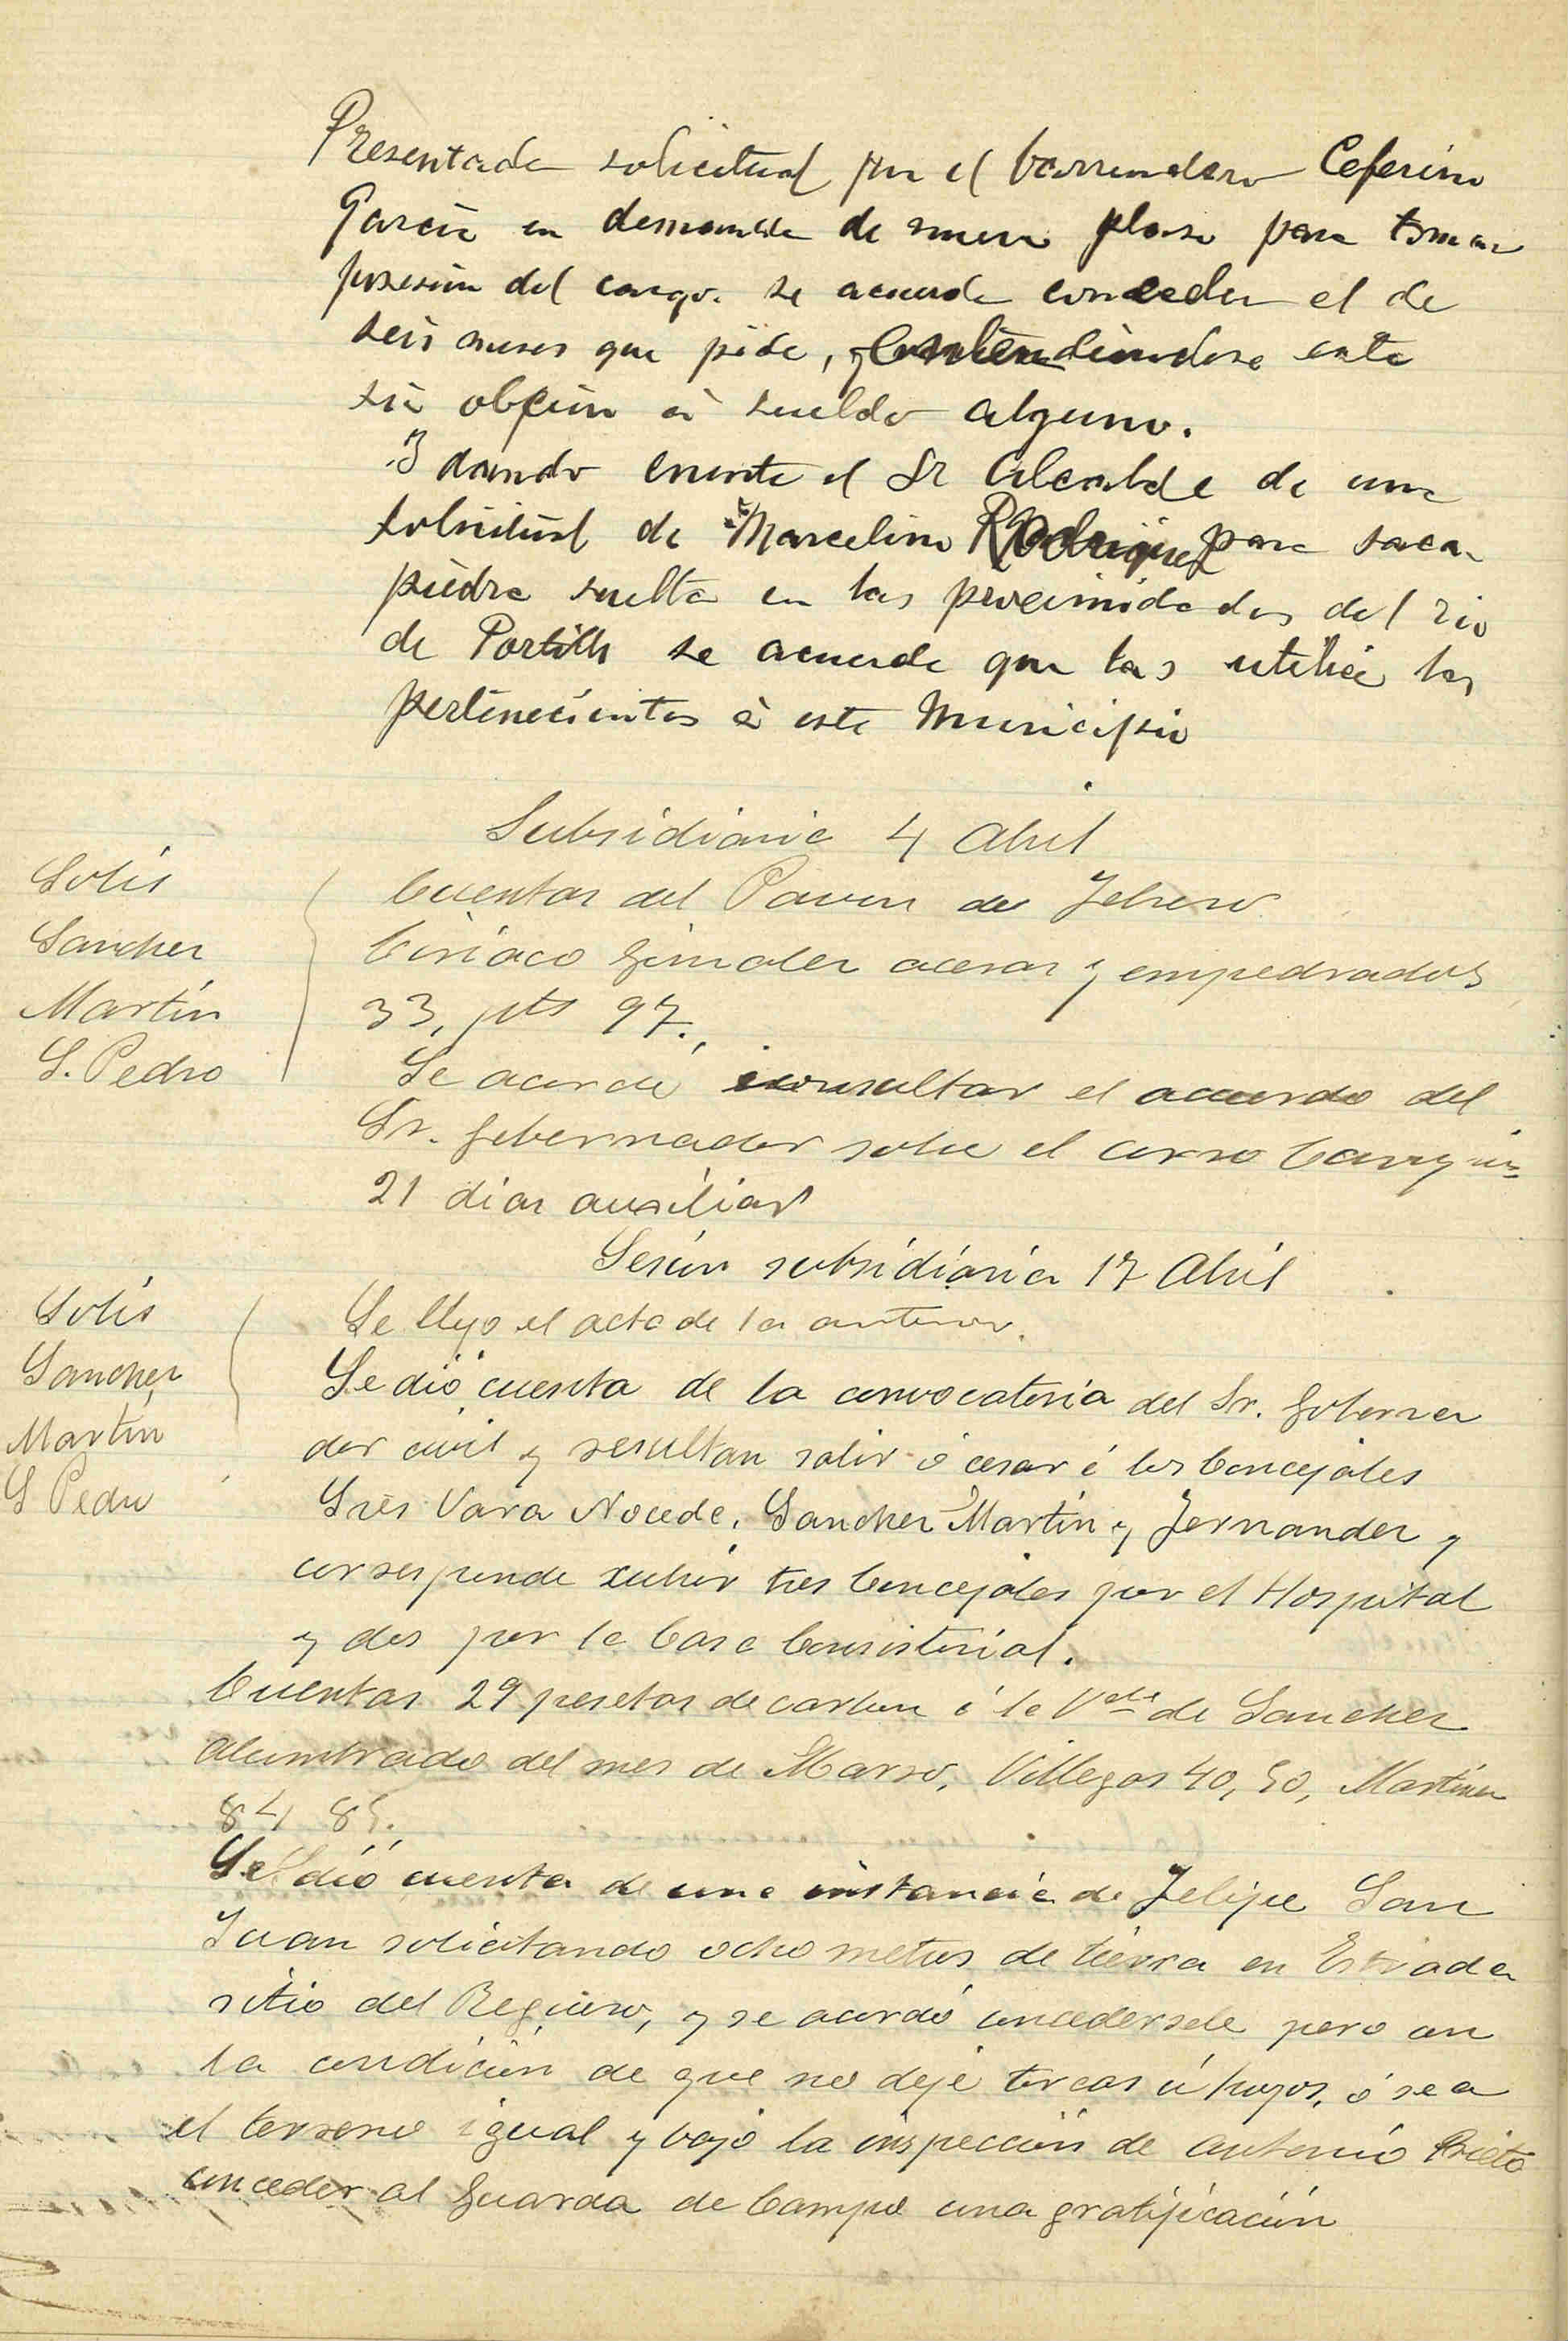 Presentada solicitud por el barrendero Ceferino
García en demanda de nuevo plazo para tomar
posesión del cargo. se acuerda conceder el de
seis meses que pide, entendiendose este
sin obción á sueldo alguno.
Y dando cuenta el Sr Alcalde de una
solicitud de Marcelino Rodriguez para sacar
piedra suelta en las proximidades del rio
de Portillo se acuerda que las utilice las
pertenecientes á este Municipio
Subsidiaria 4 Abril
Solis
Sanchez
Martín
S. Pedro
Cuentas del Pavon de Febrero
Ciriaco Gimalez aceras y empedrados
33, pts 97.
Se acordó consultar el acuerdo del
Sr. Gobernador sobre el corso
21 dias auxiliar
Sesión subsidiaria 17 Abril
Solis
Sanchez
Martín
S Pedro
Se lleyo el acta de la anterior.
Se dió cuenta de la convocatoria del Sr. Goberna
dor civil y resultan salir ó cesar é los Concejales
Sres Vara Nocede, Sanchez Martín y Fernandez y
corresponde cubrir tres Concejales por el Hospital
y dos por la Casa Consistorial.
Cuentas 29 pesetas de carbon á la Vda de Sanchez
alumbrado del mes de Marzo, Villegas 40,50, Martinez
84 85.
Se dió cuenta de una instancia de Felipe San
Juan solicitando ocho metros de tierra en Estrada
sitio del Reguero, y se acordó concedersele pero con
la condición de que no deje torcas ú hoyos, ó sea
el terreno igual y bajo la inspección de Antonio Prieto
conceder al Guarda de Campo una gratificación